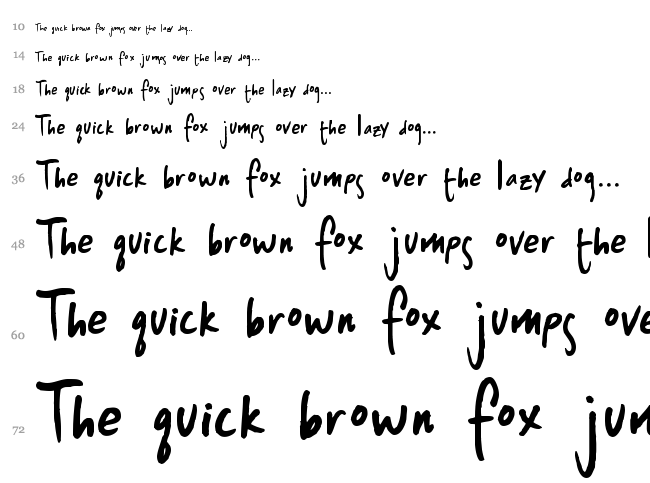 10 The quick brown fox jumps over the lazy dog...
14 The quick brown fox jumps over the lazy dog...
18 The quick brown fox jumps over the lazy dog...
24 The quick brown fox jumps over the lazy dog...
36 The quick brown fox jumps over the lazy dog...
48 The quick brown fox jumps over the l
60 The quick brown fox jumps ove
72 The quick brown fox jun